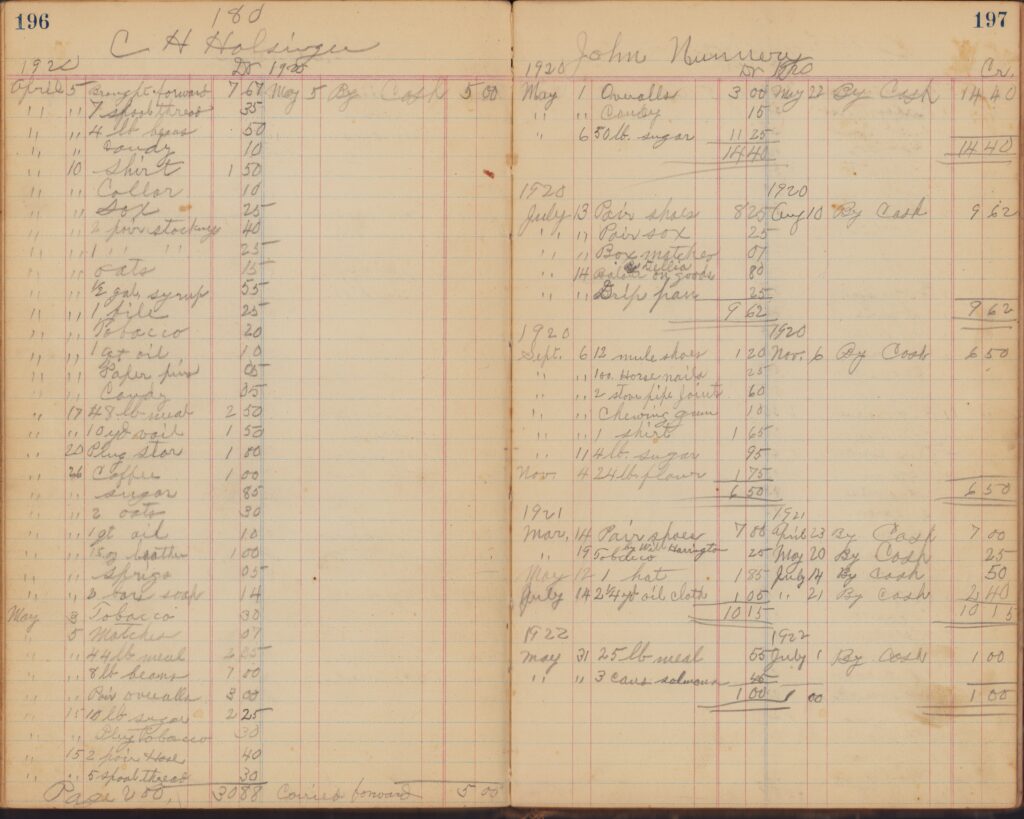 196
180
C H Holsinger
1920 Dr 1920
April 5 Brought forward 7 67 May 5 By Cash 5 00
" " 7 spool thread 35
" " 4 lb beans 50
" " Candy 10
" 10 Shirt 1 50
" " Collar 10
" " Sox 25
" " 2 pair stockings 40
" " 1 " " 25
" " oats 15
" " ½ gal. syrup 55
" " 1 file 25
" " Tobacco 20
" " 1 qt oil 10
" " Paper pins 05
" " Candy 35
" 17 48 lb meal 2 50
" " 10 yd voil 1 50
" 20 Plug Star 1 80
" 26 Coffee 1 00
" " sugar 85
" " 2 oats 30
" " 1 qt oil 10
" " leather 1 00
" " Sprigs 05
" " 2 bars soap 14
May 3 Tobacco 30
" 5 Matches 07
" " 44 lb meal 2 25
" " 8 lb beans 1 00
" " Pair overalls 3 00
" 15 10 lb sugar 2 25
" " Plug Tobacco 30
" 15 2 pair Hose 40
" " 5 spool thread 30
Page 200. 30 88 Carried forward 5 00
197
John Nunnery
1920 Dr 1920 Cr.
May 1 Overalls 3 00 May 22 By Cash 14 40
" " Candy 15
" 6 50 lb. sugar 11 25
14 40 14 40
1920 1920
July 13 Pair shoes 8 25 Aug 10 By Cash 9 62
" " Pair sox 25
" " Box matches 07
" 14 on goods 80
" " Drip pan 25
9 62 9 62
1920 1920
Sept. 6 12 mule shoes 1 20 Nov. 6 By Cash 6 50
" " 100 Horse nails 25
" " 2 stove pipe joints 60
" " Chewing gum 10
" " 1 shirt 1 65
" 11 4 lb. sugar 95
Nov. 4 24 lb. flour 1 75
6 50 6 50
1921 1921
Mar. 14 Pair shoes 7 00 April 23 By Cash 7 00
by Will Harrington
" 19 Tobacco 25 May 20 By Cash 25
May 12 1 hat 1 85 July 14 By Cash 50
July 14 2¼ yd oil cloth 1 05 " 21 By Cash 2 40
10 15 10 15
1922 1922
May 31 25 lb meal 55 July 1 By Cash 1 00
" " 3 cans salmons 45
1 00 1 00 1 00